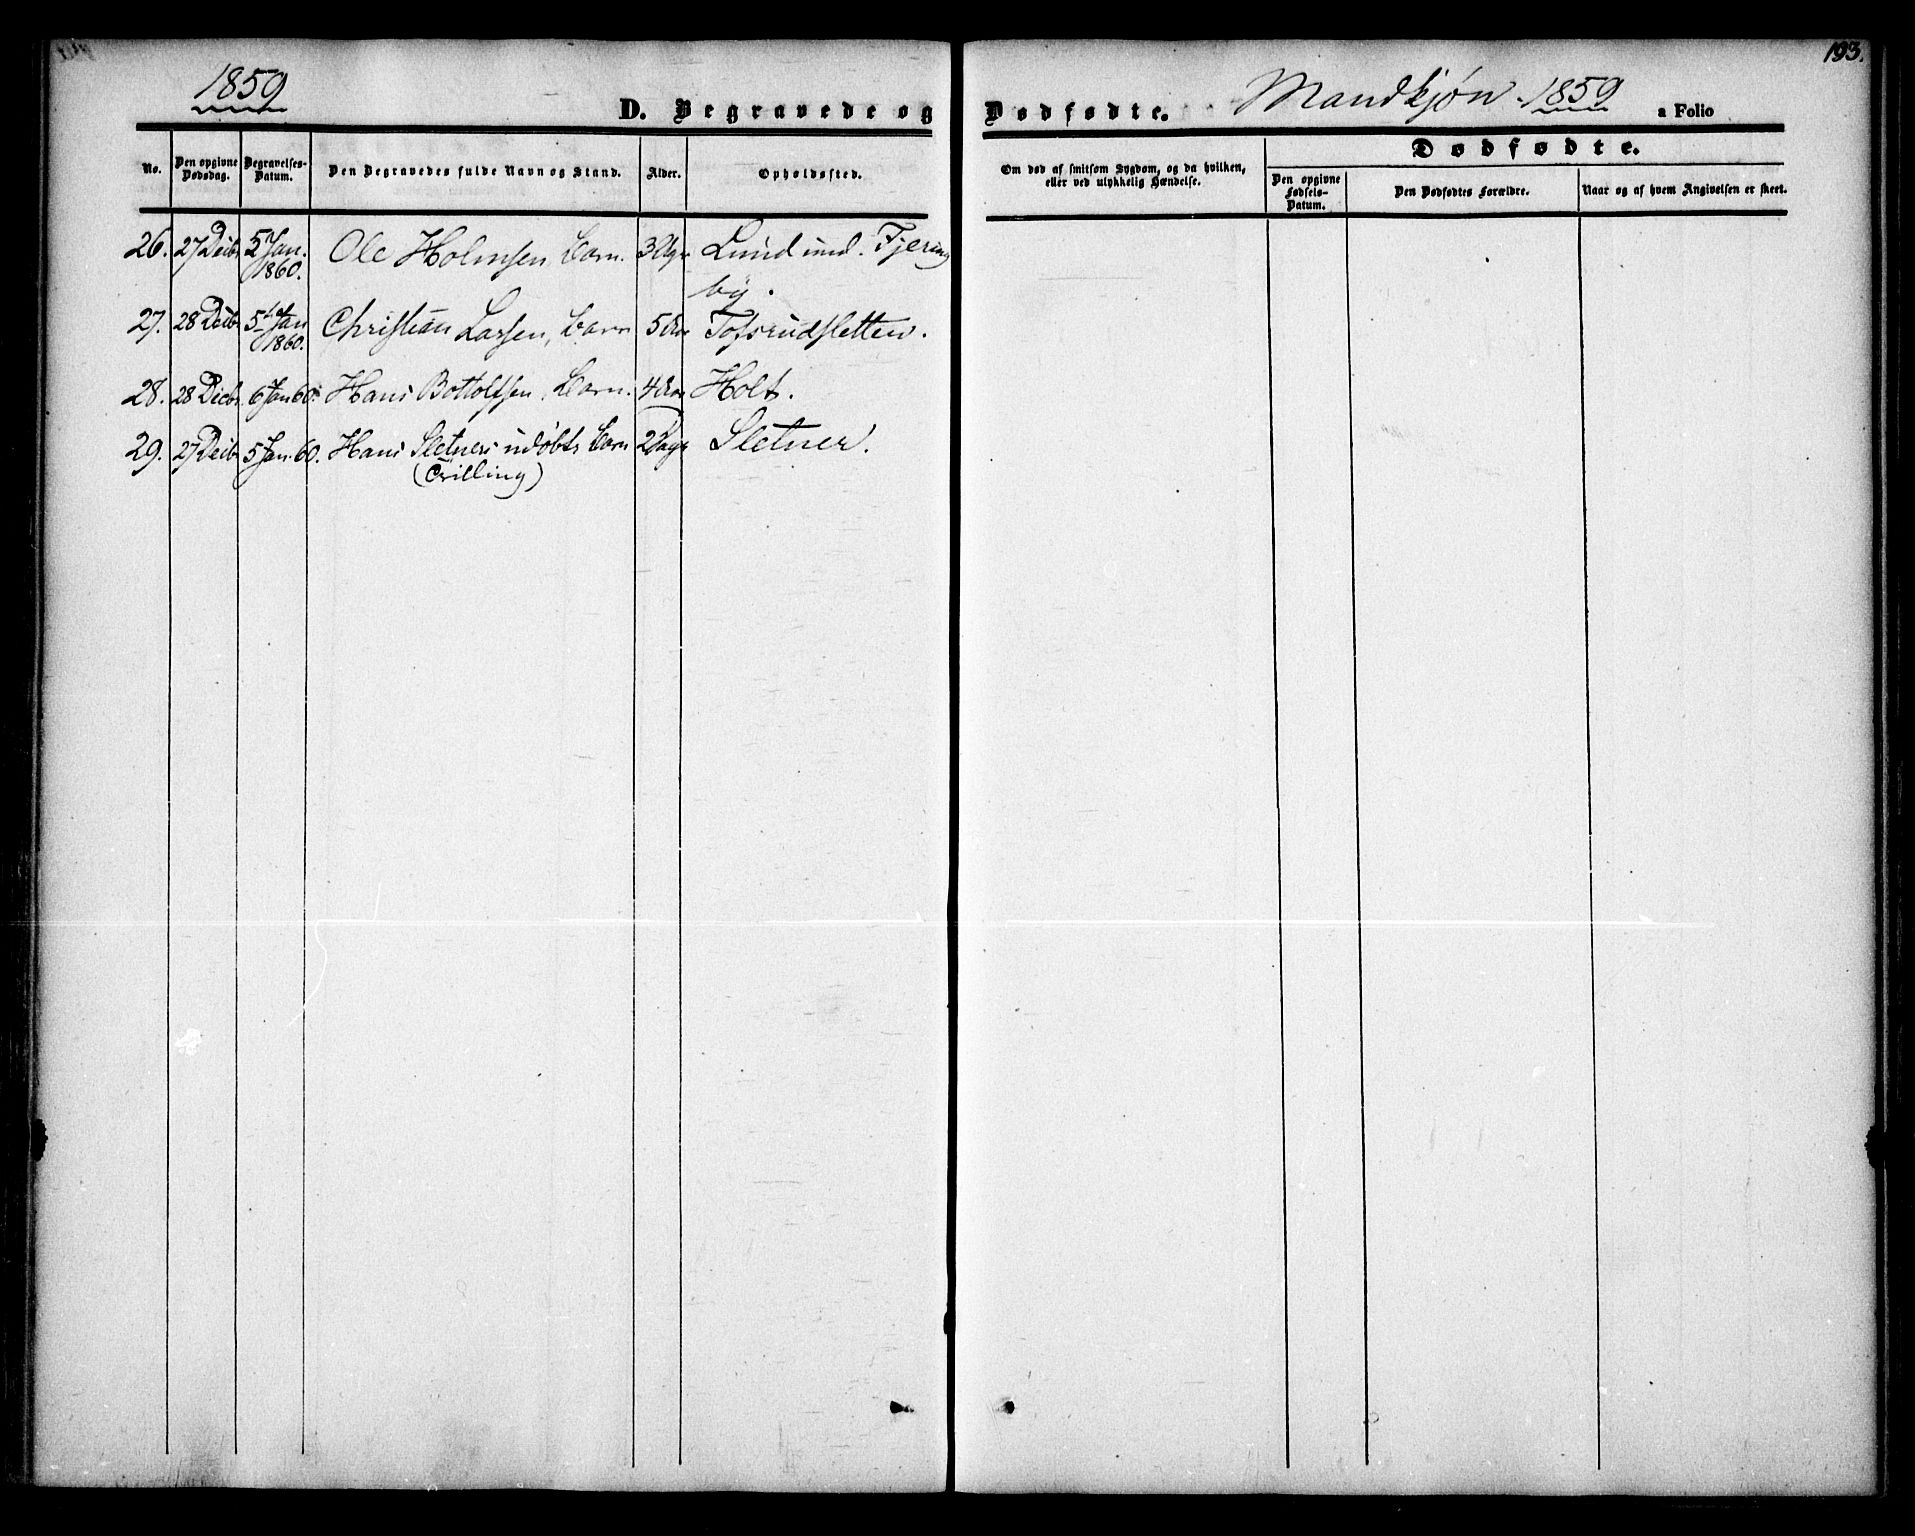 193.
1859
D. Begravede og Dødfødte. Mandkjøn. 1859 a Folio
No.
Den opgivne Dødsdag.
Begravelses-Datum.
Den Begravedes fulde Navn og Stand.
Alder.
Opholdssted.
Om død af smitsom Sygdom, og da hvilken,
eller ved ulykkelig Hændelse.
Dødfødte.
Den opgivne Fødsels-Datum.
Den Dødfødtes Forældre.
Naar og af hvem Angivelsen er skeet.
26. 27 Decbr 5 Jan. 1860. Ole Holmsen, barn. Lund und. Fjering
by.
27. 28 Decbr 5 Jan 1860. Christian Larsen, barn 5 Tofsrudsletten.
28. 28 Decbr. 6 Jan 60. Hans Bottolfsen, barn. 4 Holt.
29. 27 Decbr 5 Jan. 60. Hans Sletners udøbte barn 2 Dage Sletner.
(Trilling)